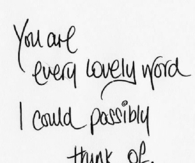 You are
every lovely word
I could possibly
think of.